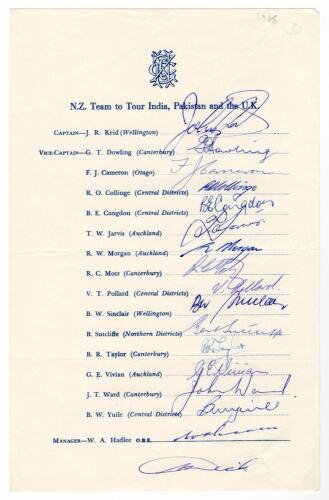 N.Z. Team to Tour India, Pakistan and the U.K.
CAPTAIN—J. R. Reid (Wellington)
VICE-CAPTAIN—G. T. Dowling (Canterbury) Dowling
F. J. Cameron (Otago) F J Cameron
R. O. Collinge (Central Districts) R O Collinge
B. E. Congdon (Central Districts) B E Congdon
T. W. Jarvis (Auckland)
R. W. Morgan (Auckland) R Morgan
R. C. Motz (Canterbury)
V. T. Pollard (Central Districts) V Pollard
B. W. Sinclair (Wellington)
B. Sutcliffe (Northern Districts)
B. R. Taylor (Canterbury)
G. E. Vivian (Auckland) G E Vivian
J. T. Ward (Canterbury) John Ward
B. W. Yuile (Central Districts)
MANAGER—W. A. Hadlee O.B.E.